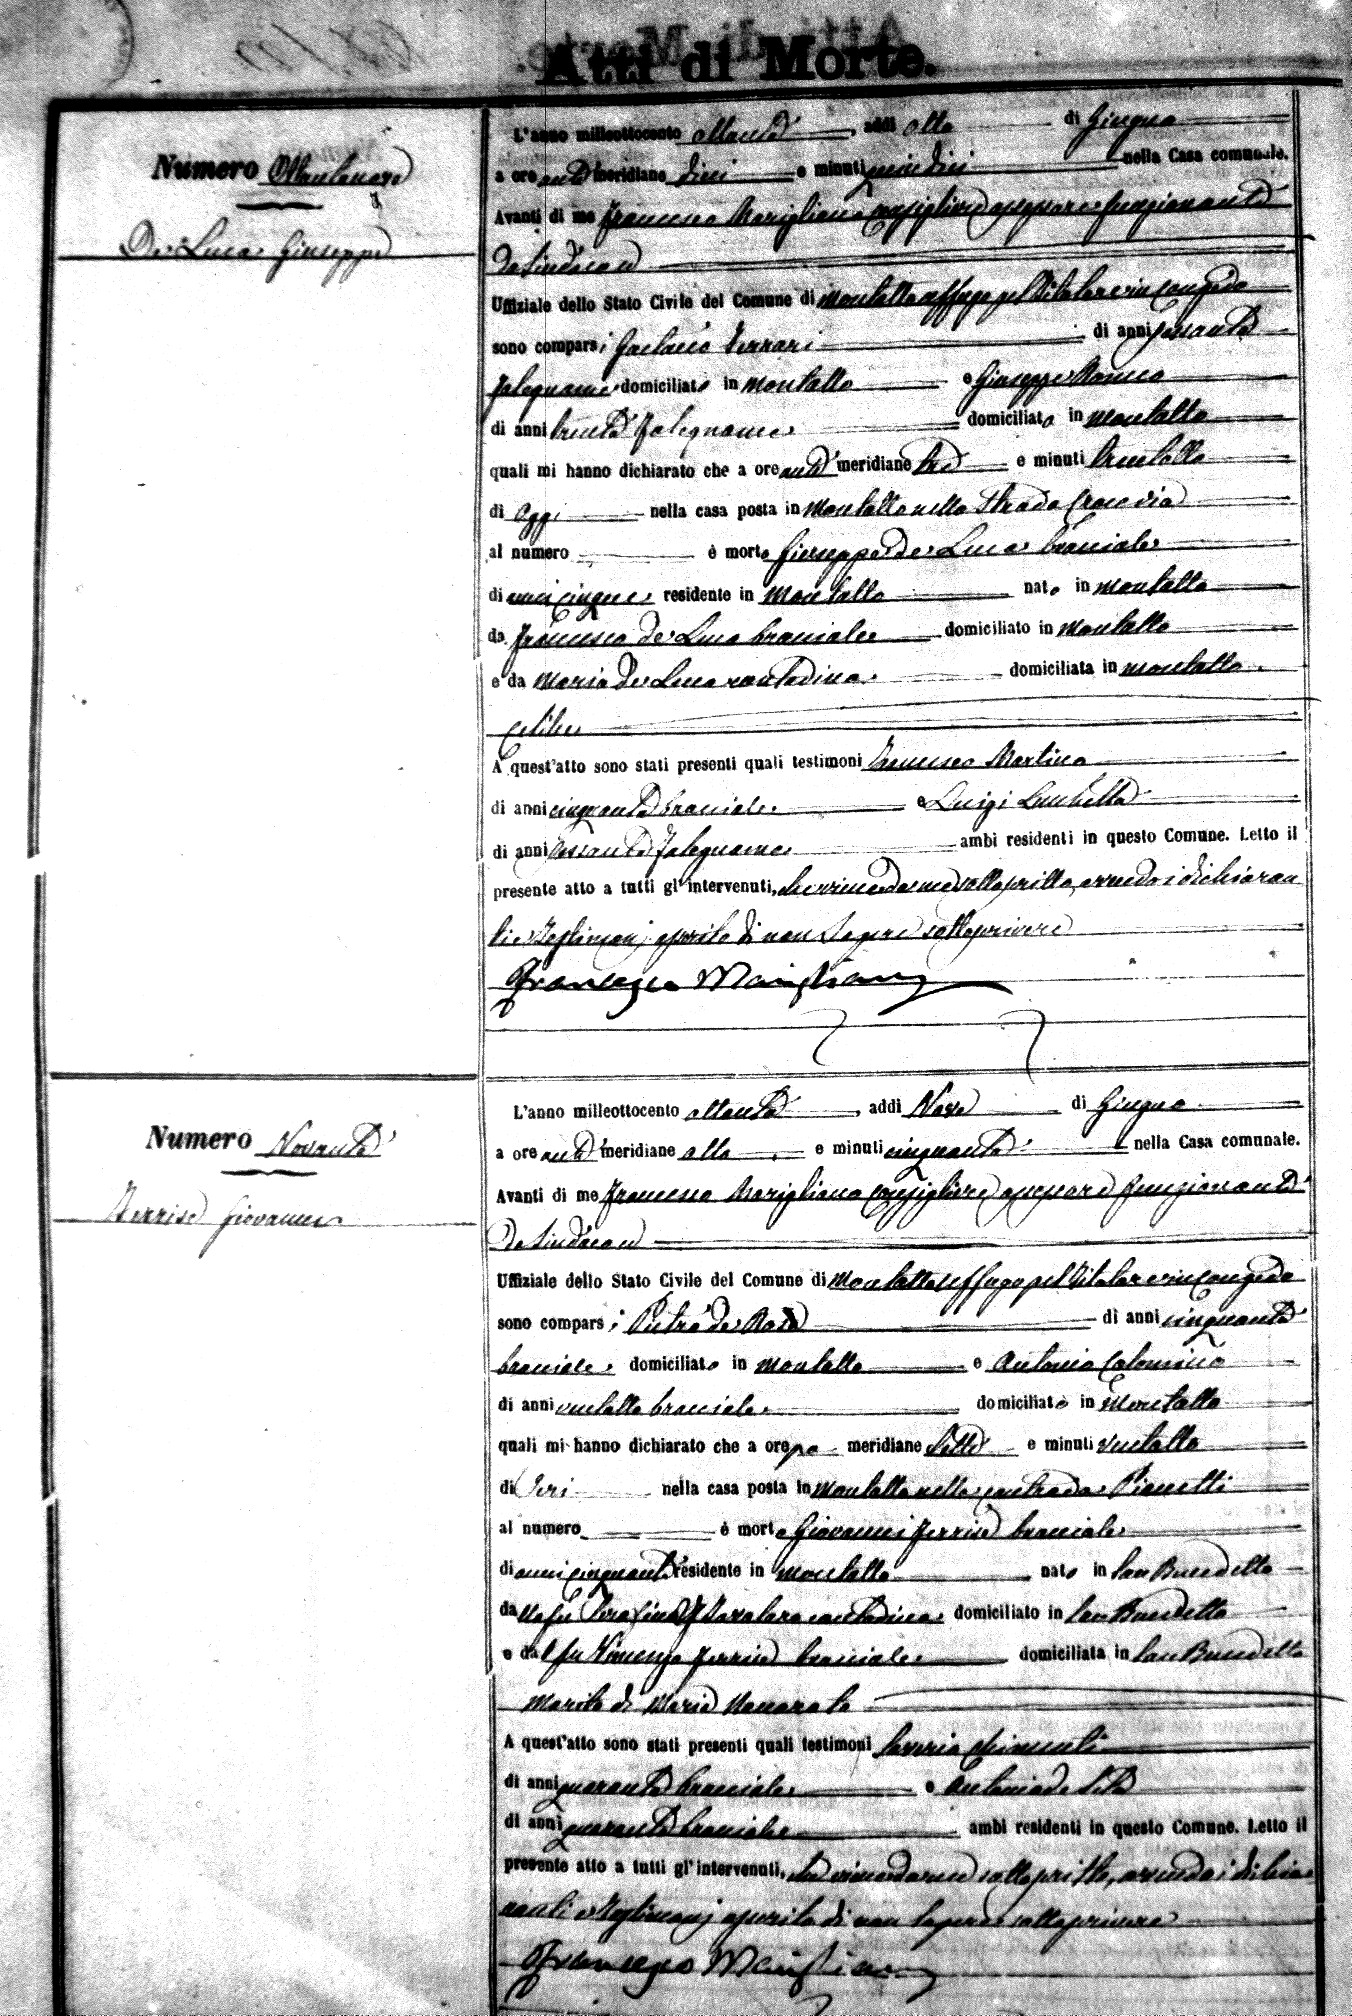 Atti di Morte.
Numero Ottantanove
De Luca Giuseppe
L'anno milleottocento ottanta, addì otto di Giugno
a ore anti meridiane dieci e minuti quindici nella Casa comunale.
Avanti di me Francesco Marigliano Consigliere Assessore funzionante
da Sindaco
Uffiziale dello Stato Civile del Comune di Montalto Uffugo pel Titolare in congedo
sono comparsi Gaetano Ferrari di anni sessanta
falegname domiciliato in Montalto e Giuseppe
di anni trenta falegname domiciliato in Montalto
quali mi hanno dichiarato che a ore anti meridiane tre e minuti trentotto
di Oggi nella casa posta in Montalto nella Strada Crocevia
al numero è morto Giuseppe de Luca bracciale
di anni cinque residente in Montalto nato in Montalto
da Francesco de Luca bracciale domiciliato in Montalto
e da Maria de Luca contadina domiciliata in Montalto
celibe
A quest'atto sono stati presenti quali testimoni Francesco Martino
di anni cinquanta bracciale e Luigi
di anni sessanta falegname ambi residenti in questo Comune. Letto il
presente atto a tutti gl'intervenuti, sottoscritto, avendo i dichiaran
ti e Testimonj asserito di non sapere sottoscrivere
Francesco Marigliano
Numero Novanta
Perrise Giovanni
L'anno milleottocento ottanta, addì Nove di Giugno
a ore anti meridiane otto e minuti cinquanta nella Casa comunale.
Avanti di me Francesco Marigliano Consigliere Assessore funzionante
da Sindaco
Uffiziale dello Stato Civile del Comune di Montalto Uffugo pel Titolare in congedo
sono comparsi Pietro de Rose di anni cinquanta
bracciale domiciliato in Montalto e Antonio
di anni ventotto bracciale domiciliato in Montalto
quali mi hanno dichiarato che a ore po meridiane Sette e minuti ventotto
di Ieri nella casa posta in Montalto nella contrada Pianetti
al numero è morto Giovanni Perrise bracciale
di anni cinquanta residente in Montalto nato in San Benedetto
da la fu contadina domiciliato in San Benedetto
e dal fu Vincenzo Perrise bracciale domiciliata in San Benedetto
marito di Maria
A quest'atto sono stati presenti quali testimoni Saverio Chimenti
di anni quaranta bracciale e Antonio de Seta
di anni quaranta bracciale ambi residenti in questo Comune. Letto il
presente atto a tutti gl'intervenuti, sottoscritto, avendo i dichia
ranti e Testimonj asserito di non sapere sottoscrivere
Francesco Marigliano